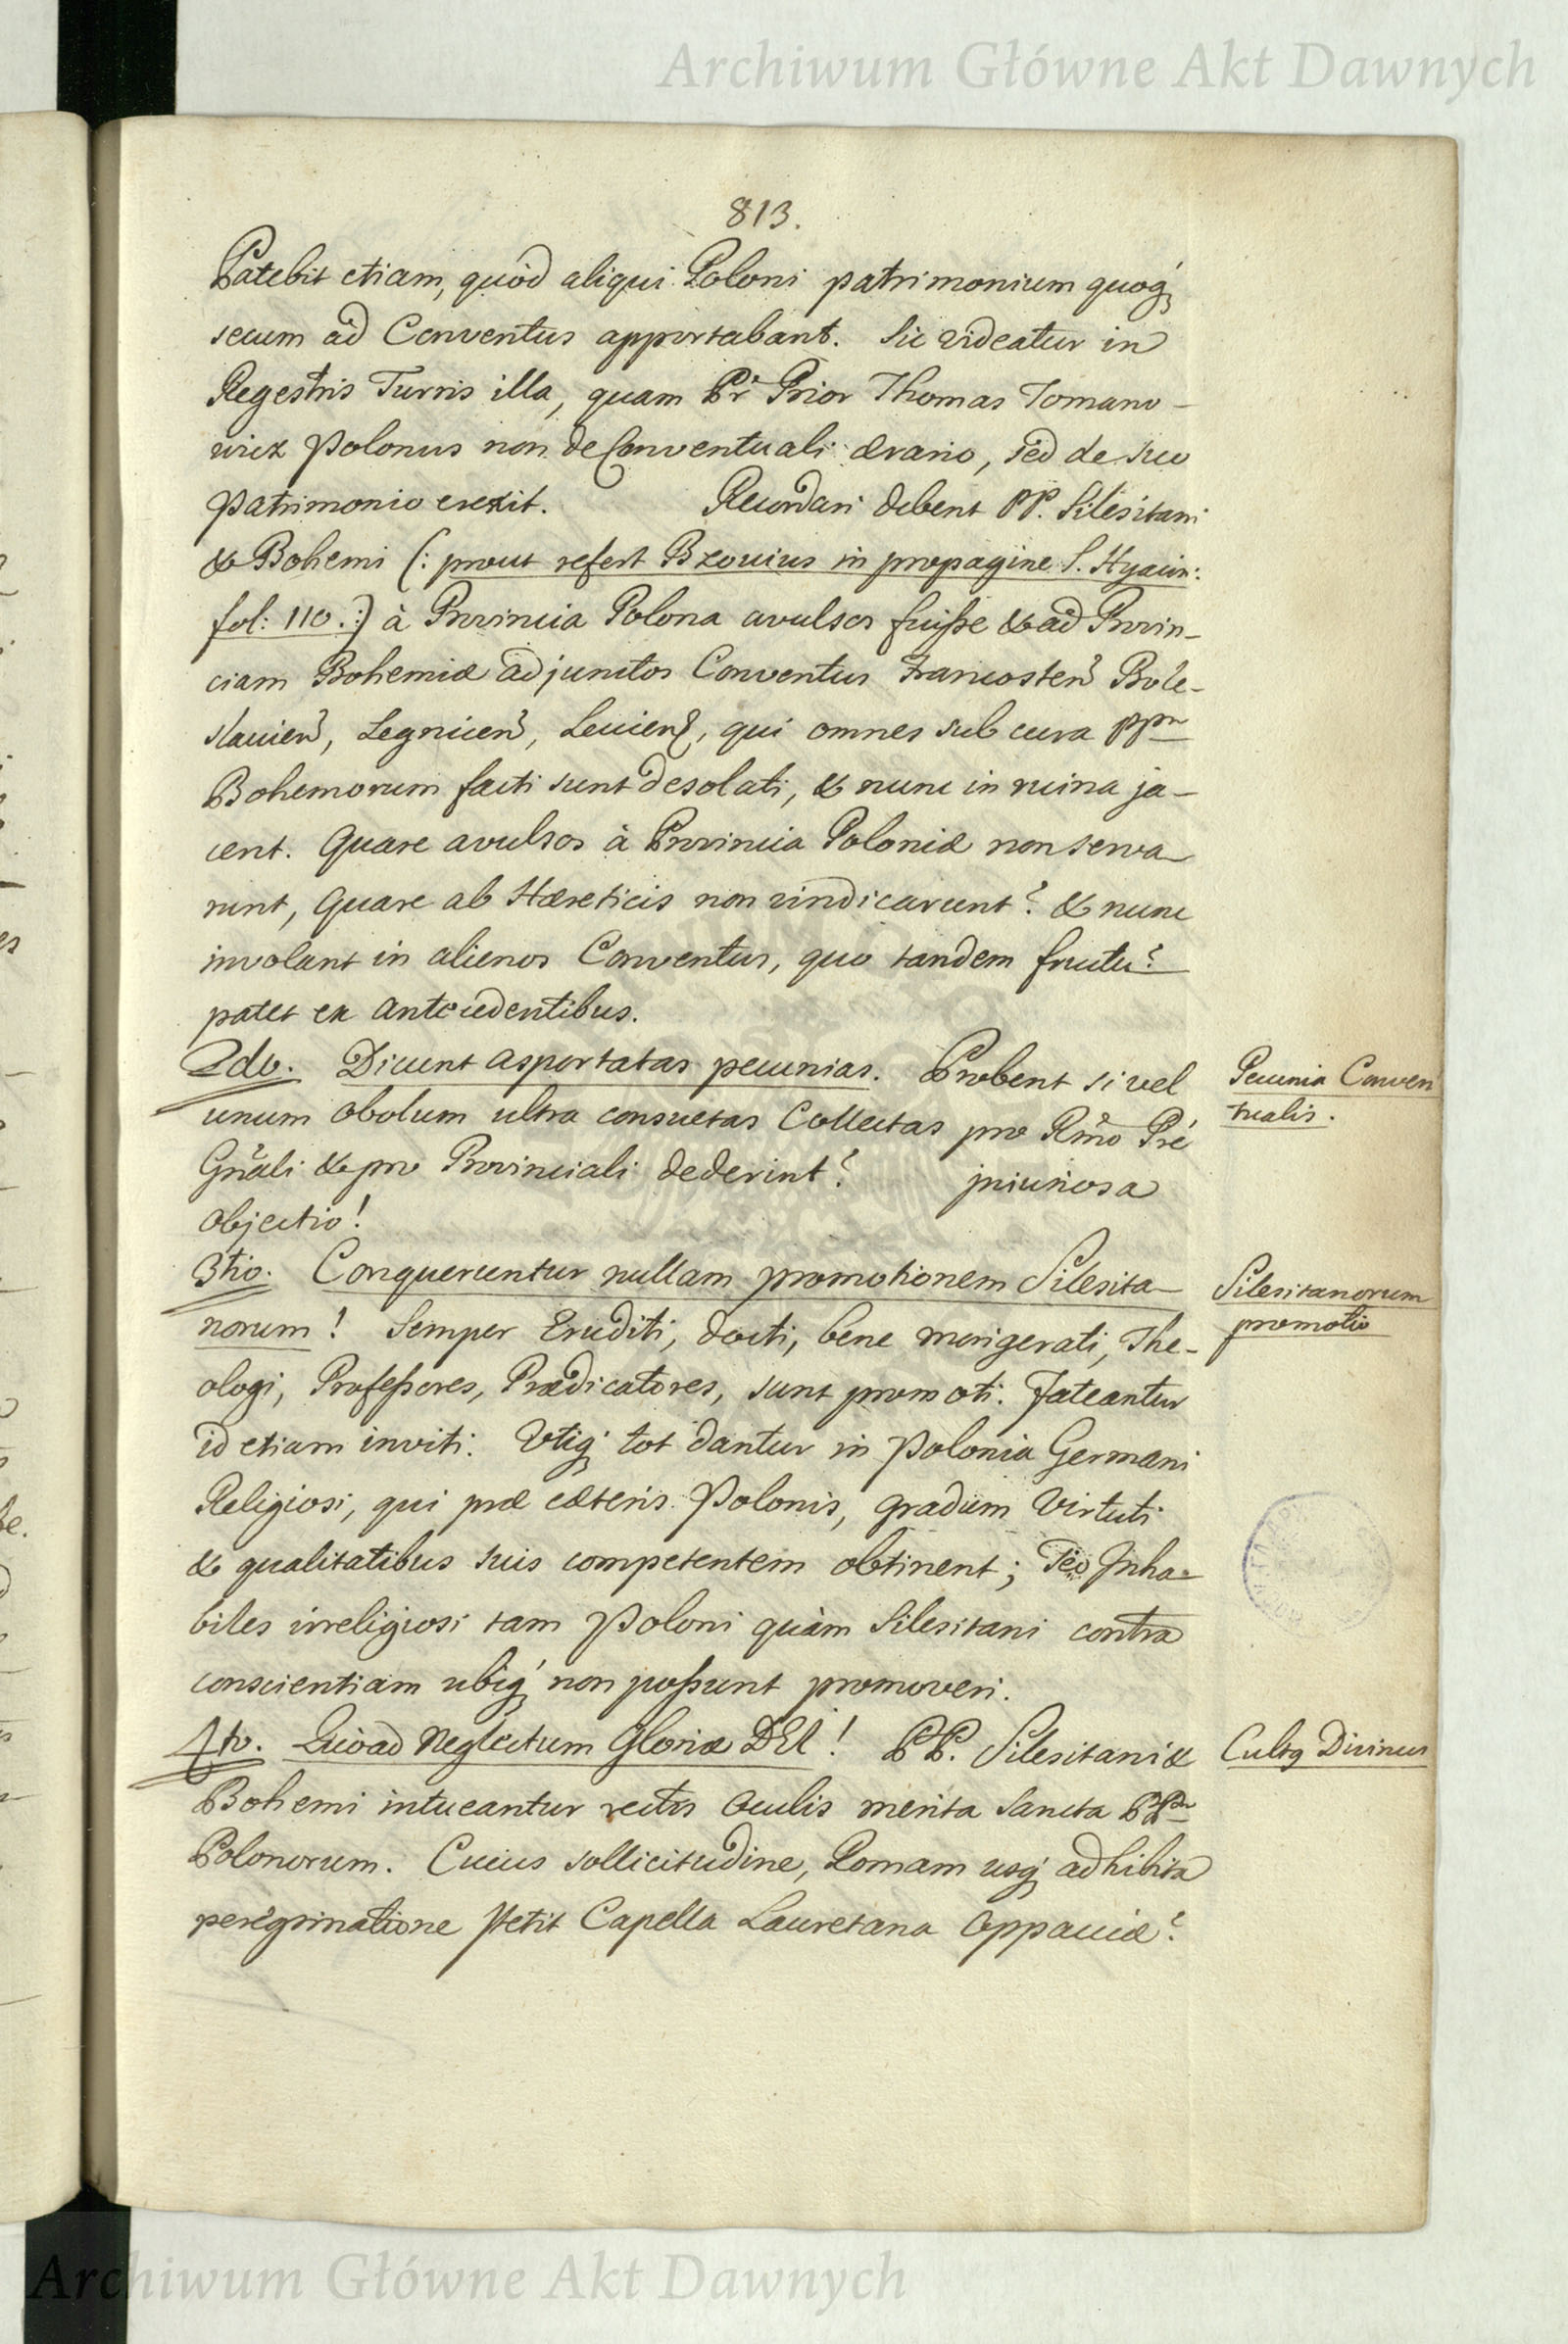 Archiwum Główne Akt Dawnych
813.
Patebit etiam, quòd aliqui Poloni patrimonium quoq́;
secum ad Conventus apportabant. Sic videatur in
Regestris Turris illa, quam Pr̃ Prior Thomas Tomano-
wicz Polonus non de Conventuali ærario, sed de suo
patrimonio erexit. Recordari debent PP. Silesitani
& Bohemi (: prout refert Bzovius in propagine S. Hyacin:
fol: 110. :) à Provincia Polona avulsos fuiße & ad Provin-
ciam Bohemiæ adjunctos Conventus Francosten̄ Bole-
slavien̄, Legnicen̄, Levicen̄, qui omnes sub cura PPm
Bohemorum facti sunt desolati, & nunc in ruina ja-
cent. Quare avulsos à Provincia Poloniæ non serva
runt, Quare ab Hæreticis non vindicarunt? & nunc
involant in alienos Conventus, quo tandem fructu?
patet ex antecedentibus.
2do. Dicunt asportatas pecunias. Probent si vel
unum obolum ultra consuetas Collectas pro Rm̃o Prẽ
Gnãli & pro Provinciali dederint? injuriosa
objectio!
Pecunia Conven
tualis.
3tio. Conqueruntur nullam promotionem Silesita-
norum! Semper Eruditi, docti, bene morigerati, The-
ologi, Profeßores, Prædicatores, sunt promoti. Fateantur
id etiam inviti. Utiq́; tot dantur in Polonia Germani
Religiosi, qui præ cæteris Polonis, gradum Virtuti
& qualitatibus suis competentem obtinent; Sed Inha-
biles irreligiosi tam Poloni quàm Silesitani contra
conscientiam ubiq́; non poßunt promoveri.
Silesitanorum
promotio
4to. Quoad Neglectum Gloriæ DEI! PP. Silesitani &
Bohemi intueantur rectis oculis merita sancta PPm
Polonorum. Cuius sollicitudine, Romam usq́; adhibita
peregrinatione stetit Capella Lauretana Oppaviæ?
Cultꝯ Divinus
Archiwum Główne Akt Dawnych